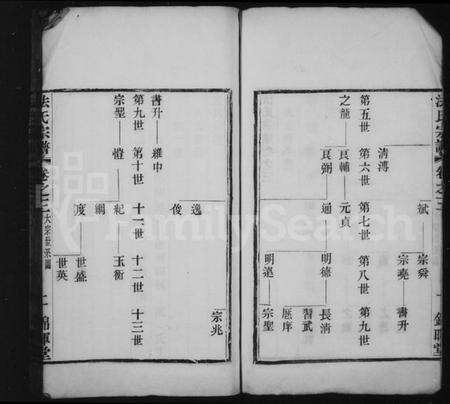 法氏宗譜
卷之三
錦暉堂
第五世 第六世 第七世 第八世 第九世
斌 宗舜
清溥 宗堯 書升
之龍 良輔 元貞
良弼 通 明德 長清
習武
明遠 宗聖
FamilySearch
書升 雍中
第九世 第十世 十一世 十二世 十三世
宗聖 愷 紀 玉衡
逸 宗兆
俊
綱
度 世盛
世英
法氏宗譜
卷之三
大宗世系圖
二
錦暉堂